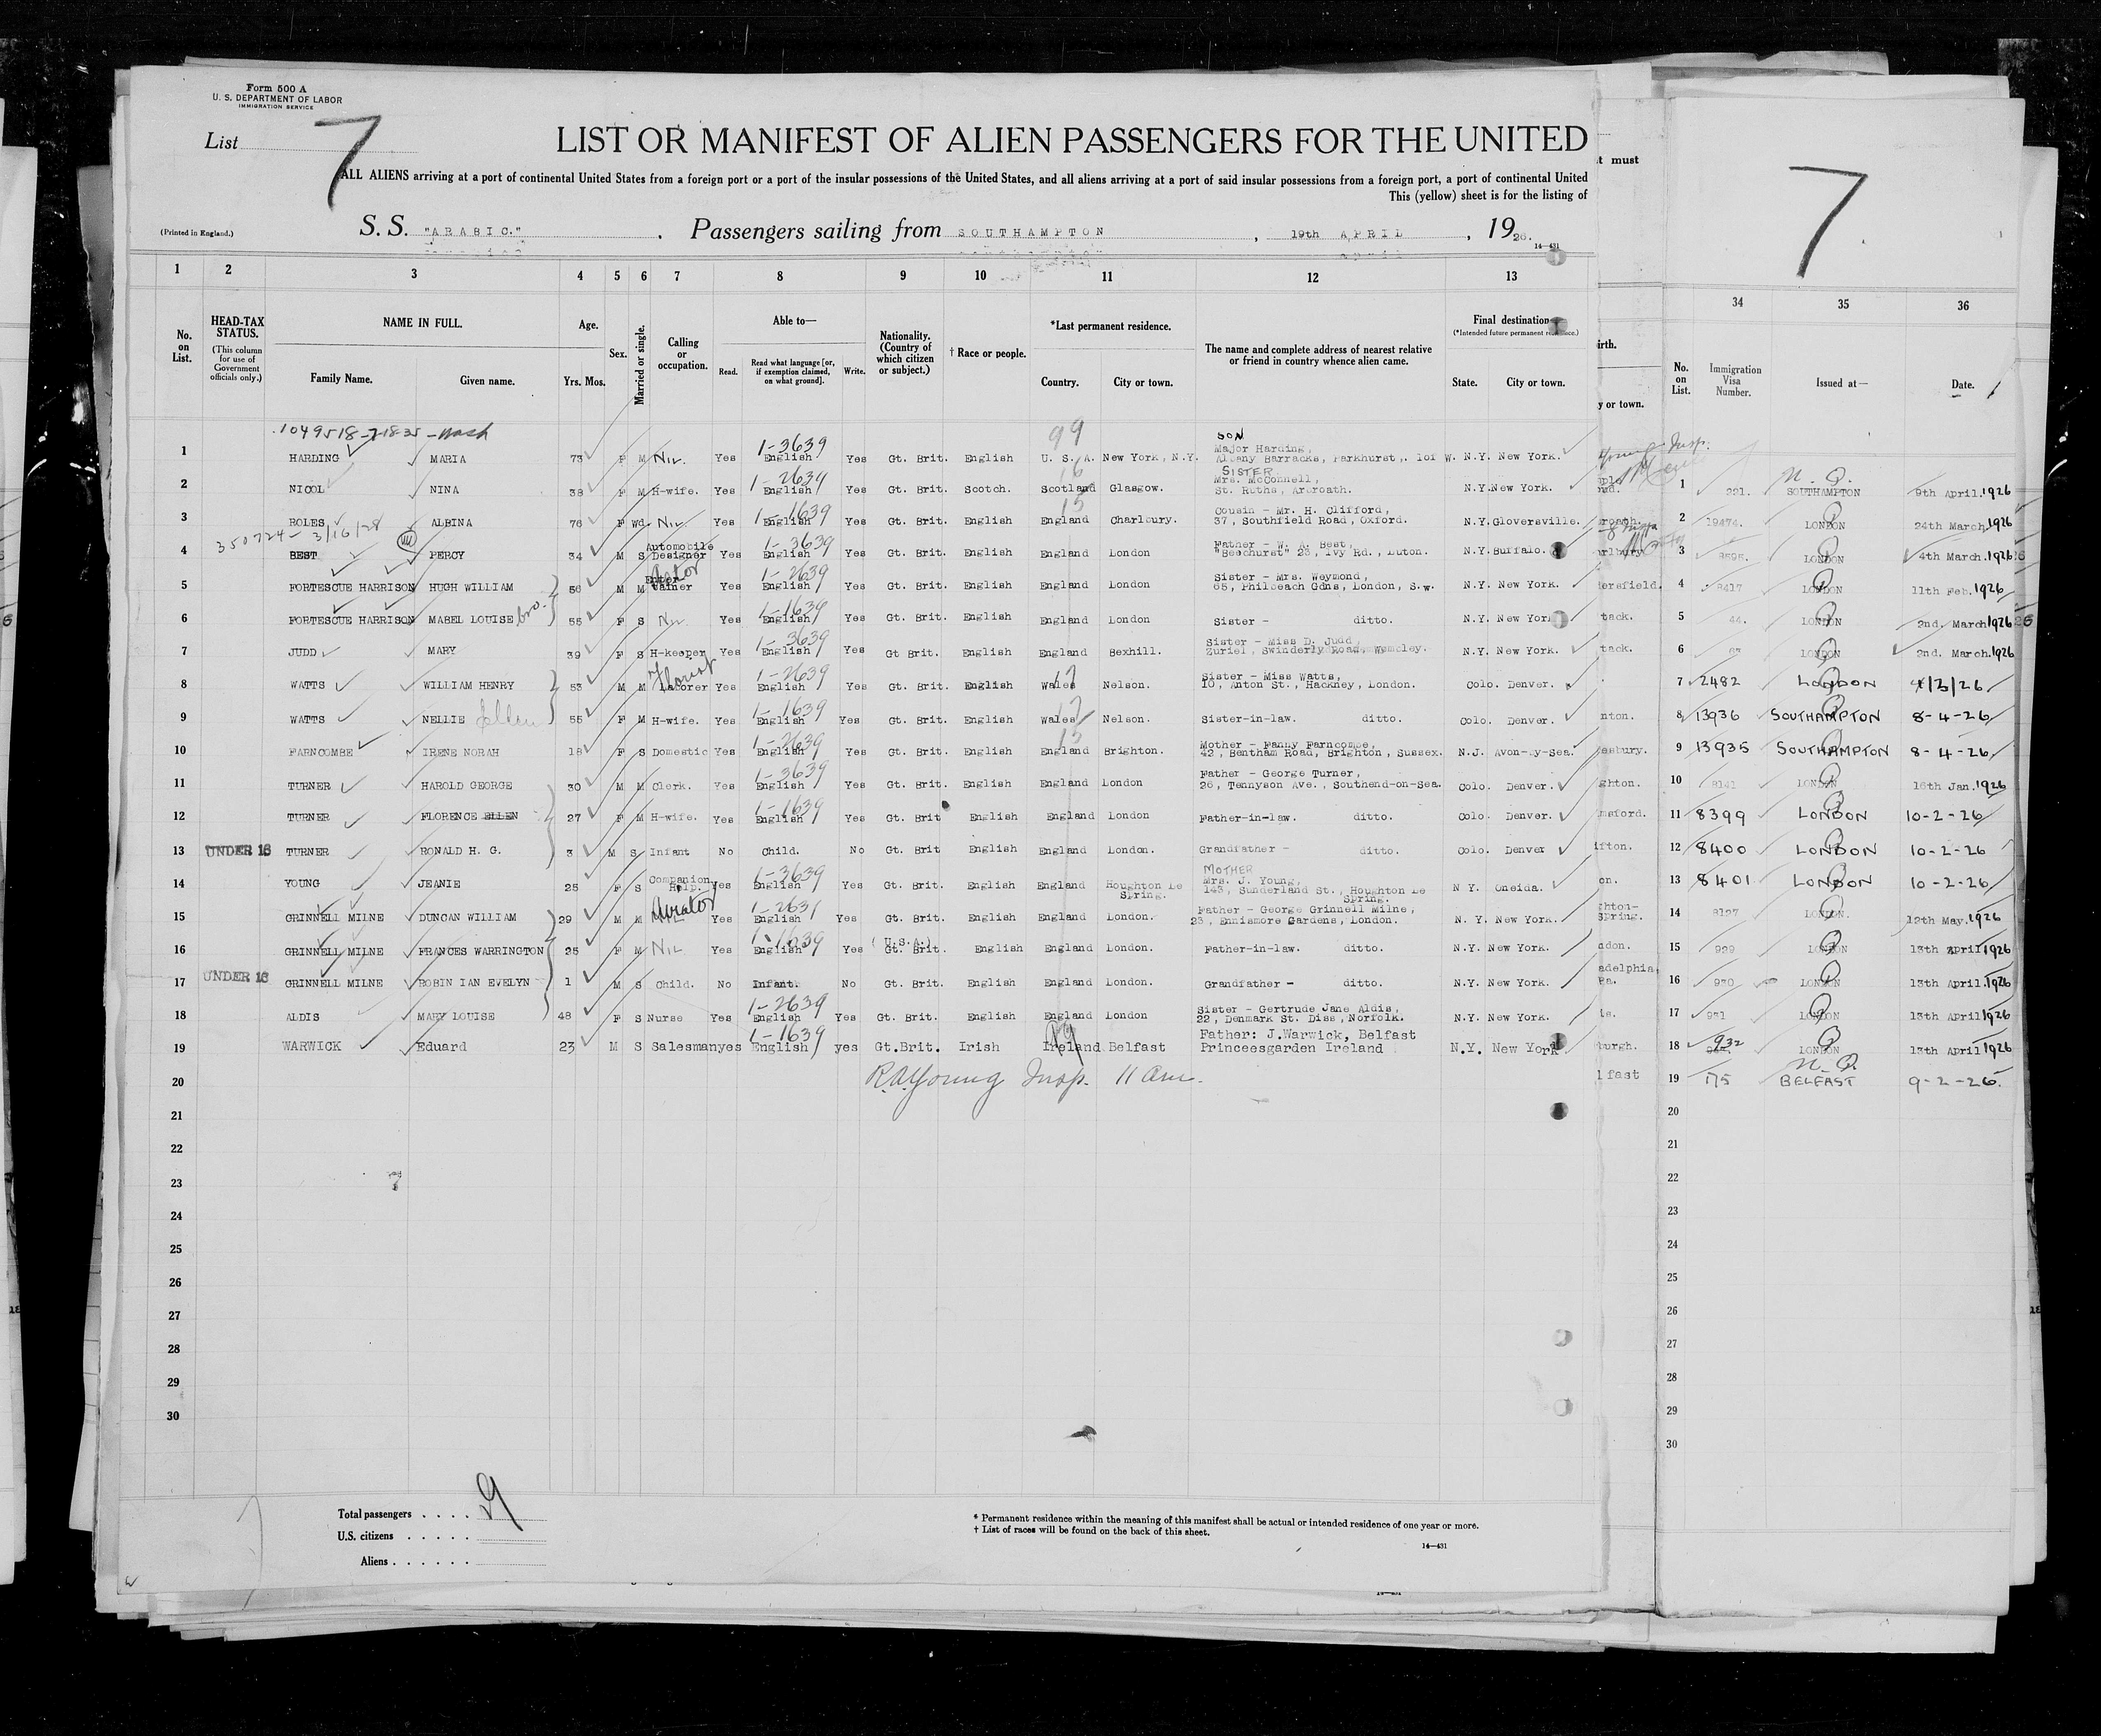 Form 500 A
U. S. DEPARTMENT OF LABOR
IMMIGRATION SERVICE
List 7
LIST OR MANIFEST OF ALIEN PASSENGERS FOR THE UNITED
ALL ALIENS arriving at a port of continental United States from a foreign port or a port of the insular possessions of the United States, and all aliens arriving at a port of said insular possessions from a foreign port, a port of continental United
This (yellow) sheet is for the listing of
(Printed in England.)
S. S. "ARABIC." , Passengers sailing from SOUTHAMPTON , 19th APRIL , 1926.
14—431
1 2 3 4 5 6 7 8 9 10 11 12 13
No. on List.
HEAD-TAX STATUS.
(This column for use of Government officials only.)
NAME IN FULL.
Family Name. Given name.
Age.
Yrs. Mos.
Sex.
Married or single.
Calling or occupation.
Able to—
Read. Read what language [or, if exemption claimed, on what ground]. Write.
Nationality. (Country of which citizen or subject.)
† Race or people.
*Last permanent residence.
Country. City or town.
The name and complete address of nearest relative or friend in country whence alien came.
Final destination
(*Intended future permanent residence.)
State. City or town.
1 HARDING MARIA 73 F M Nil Yes 1-3639 English Yes Gt. Brit. English 99 U. S. A. New York, N.Y. SON Major Harding, Albany Barracks, Parkhurst, I of W. N.Y. New York.
2 NICOL NINA 38 F M H-wife. Yes 1-2639 English Yes Gt. Brit. Scotch. 16 Scotland Glasgow. SISTER Mrs. McConnell, St. Ruths, Arbroath. N.Y. New York.
3 BOLES ALBINA 76 F Wd. Nil Yes 1-1639 English Yes Gt. Brit. English 15 England Charlbury. Cousin - Mr. H. Clifford, 37, Southfield Road, Oxford. N.Y. Gloversville.
350724 - 3/16/28
4 BEST PERCY 34 M S Automobile Designer Yes 1-3639 English Yes Gt. Brit. English England London Father - W. A. Best, "Beechurst" 23, Ivy Rd., Luton. N.Y. Buffalo.
5 FORTESCUE HARRISON HUGH WILLIAM 56 M M Actor Yes 1-2639 English Yes Gt. Brit. English England London Sister - Mrs. Weymond, 65, Philbeach Gdns, London, S.w. N.Y. New York.
6 FORTESCUE HARRISON MABEL LOUISE 55 F S Nil Yes 1-1639 English Yes Gt. Brit. English England London Sister - ditto. N.Y. New York
7 JUDD MARY 39 F S H-keeper Yes 1-3639 English Yes Gt Brit. English England Bexhill. Sister - Miss D. Judd, Zuriel, Swinderly Road, Wembley. N.Y. New York.
8 WATTS WILLIAM HENRY 53 M M Florist Laborer Yes 1-2639 English Yes Gt. Brit. English 17 Wales Nelson. Sister - Miss Watts, 10, Anton St., Hackney, London. Colo. Denver.
9 WATTS NELLIE Ellen 55 F M H-wife. Yes 1-1639 English Yes Gt. Brit. English 17 Wales Nelson. Sister-in-law. ditto. Colo. Denver.
10 FARNCOMBE IRENE NORAH 18 F S Domestic Yes 1-2639 English Yes Gt. Brit. English 15 England Brighton. Mother - Fanny Farncombe, 42, Bentham Road, Brighton, Sussex. N.J. Avon-by-Sea.
11 TURNER HAROLD GEORGE 30 M M Clerk. Yes 1-3639 English Yes Gt. Brit. English England London Father - George Turner, 26, Tennyson Ave., Southend-on-Sea. Colo. Denver.
12 TURNER FLORENCE ELLEN 27 F M H-wife. Yes 1-1639 English Yes Gt. Brit English England London Father-in-law. ditto. Colo. Denver.
13 UNDER 16 TURNER RONALD H. G. 3 M S Infant No Child. No Gt. Brit English England London. Grandfather - ditto. Colo. Denver
14 YOUNG JEANIE 25 F S Companion Help. Yes 1-3639 English Yes Gt. Brit. English England Houghton Le Spring. MOTHER Mrs. J. Young, 143, Sunderland St., Houghton Le Spring. N Y. Oneida.
15 GRINNELL MILNE DUNCAN WILLIAM 29 M M Aviator Yes 1-2631 English Yes Gt. Brit. English England London. Father - George Grinnell Milne, 23, Ennismore Gardens, London. N. Y. New York.
16 GRINNELL MILNE FRANCES WARRINGTON 25 F M Nil Yes 1-1639 English Yes (U.S.A.) Gt. Brit. English England London. Father-in-law. ditto. N.Y. New York.
17 UNDER 16 GRINNELL MILNE ROBIN IAN EVELYN 1 M S Child. No Infant. No Gt. Brit. English England London. Grandfather - ditto. N.Y. New York.
18 ALDIS MARY LOUISE 48 F S Nurse Yes 1-2639 English Yes Gt. Brit. English England London Sister - Gertrude Jane Aldis, 22, Denmark St. Diss, Norfolk. N.Y. New York.
19 WARWICK Eduard 23 M S Salesman yes 1-1639 English yes Gt.Brit. Irish Ireland Belfast Father: J.Warwick, Belfast Princeesgarden Ireland N.Y. New York
20 R.A. Young Insp. 11 am.
21
22
23
24
25
26
27
28
29
30
Total passengers
U.S. citizens
Aliens
* Permanent residence within the meaning of this manifest shall be actual or intended residence of one year or more.
† List of races will be found on the back of this sheet.
14—431
t must
irth.
y or town.
7
34 35 36
No. on List. Immigration Visa Number. Issued at— Date.
1 221. SOUTHAMPTON 9th April. 1926
2 19474. LONDON 24th March 1926
3 8595. LONDON 4th March. 1926
4 8417 LONDON 11th Feb. 1926
5 44. LONDON 2nd. March 1926
6 LONDON 2nd. March. 1926
7 2482 LONDON 4/3/26
8 13936 SOUTHAMPTON 8-4-26
9 13935 SOUTHAMPTON 8-4-26
10 8141 LONDON 16th Jan. 1926
11 8399 LONDON 10-2-26
12 8400 LONDON 10-2-26
13 8401 LONDON 10-2-26
14 8127 LONDON. 12th May. 1926
15 929 LONDON 13th April 1926
16 930 LONDON 13th April. 1926
17 931 LONDON 13th April 1926
18 932 LONDON 13th April 1926
19 175 BELFAST 9-2-26.
20
21
22
23
24
25
26
27
28
29
30